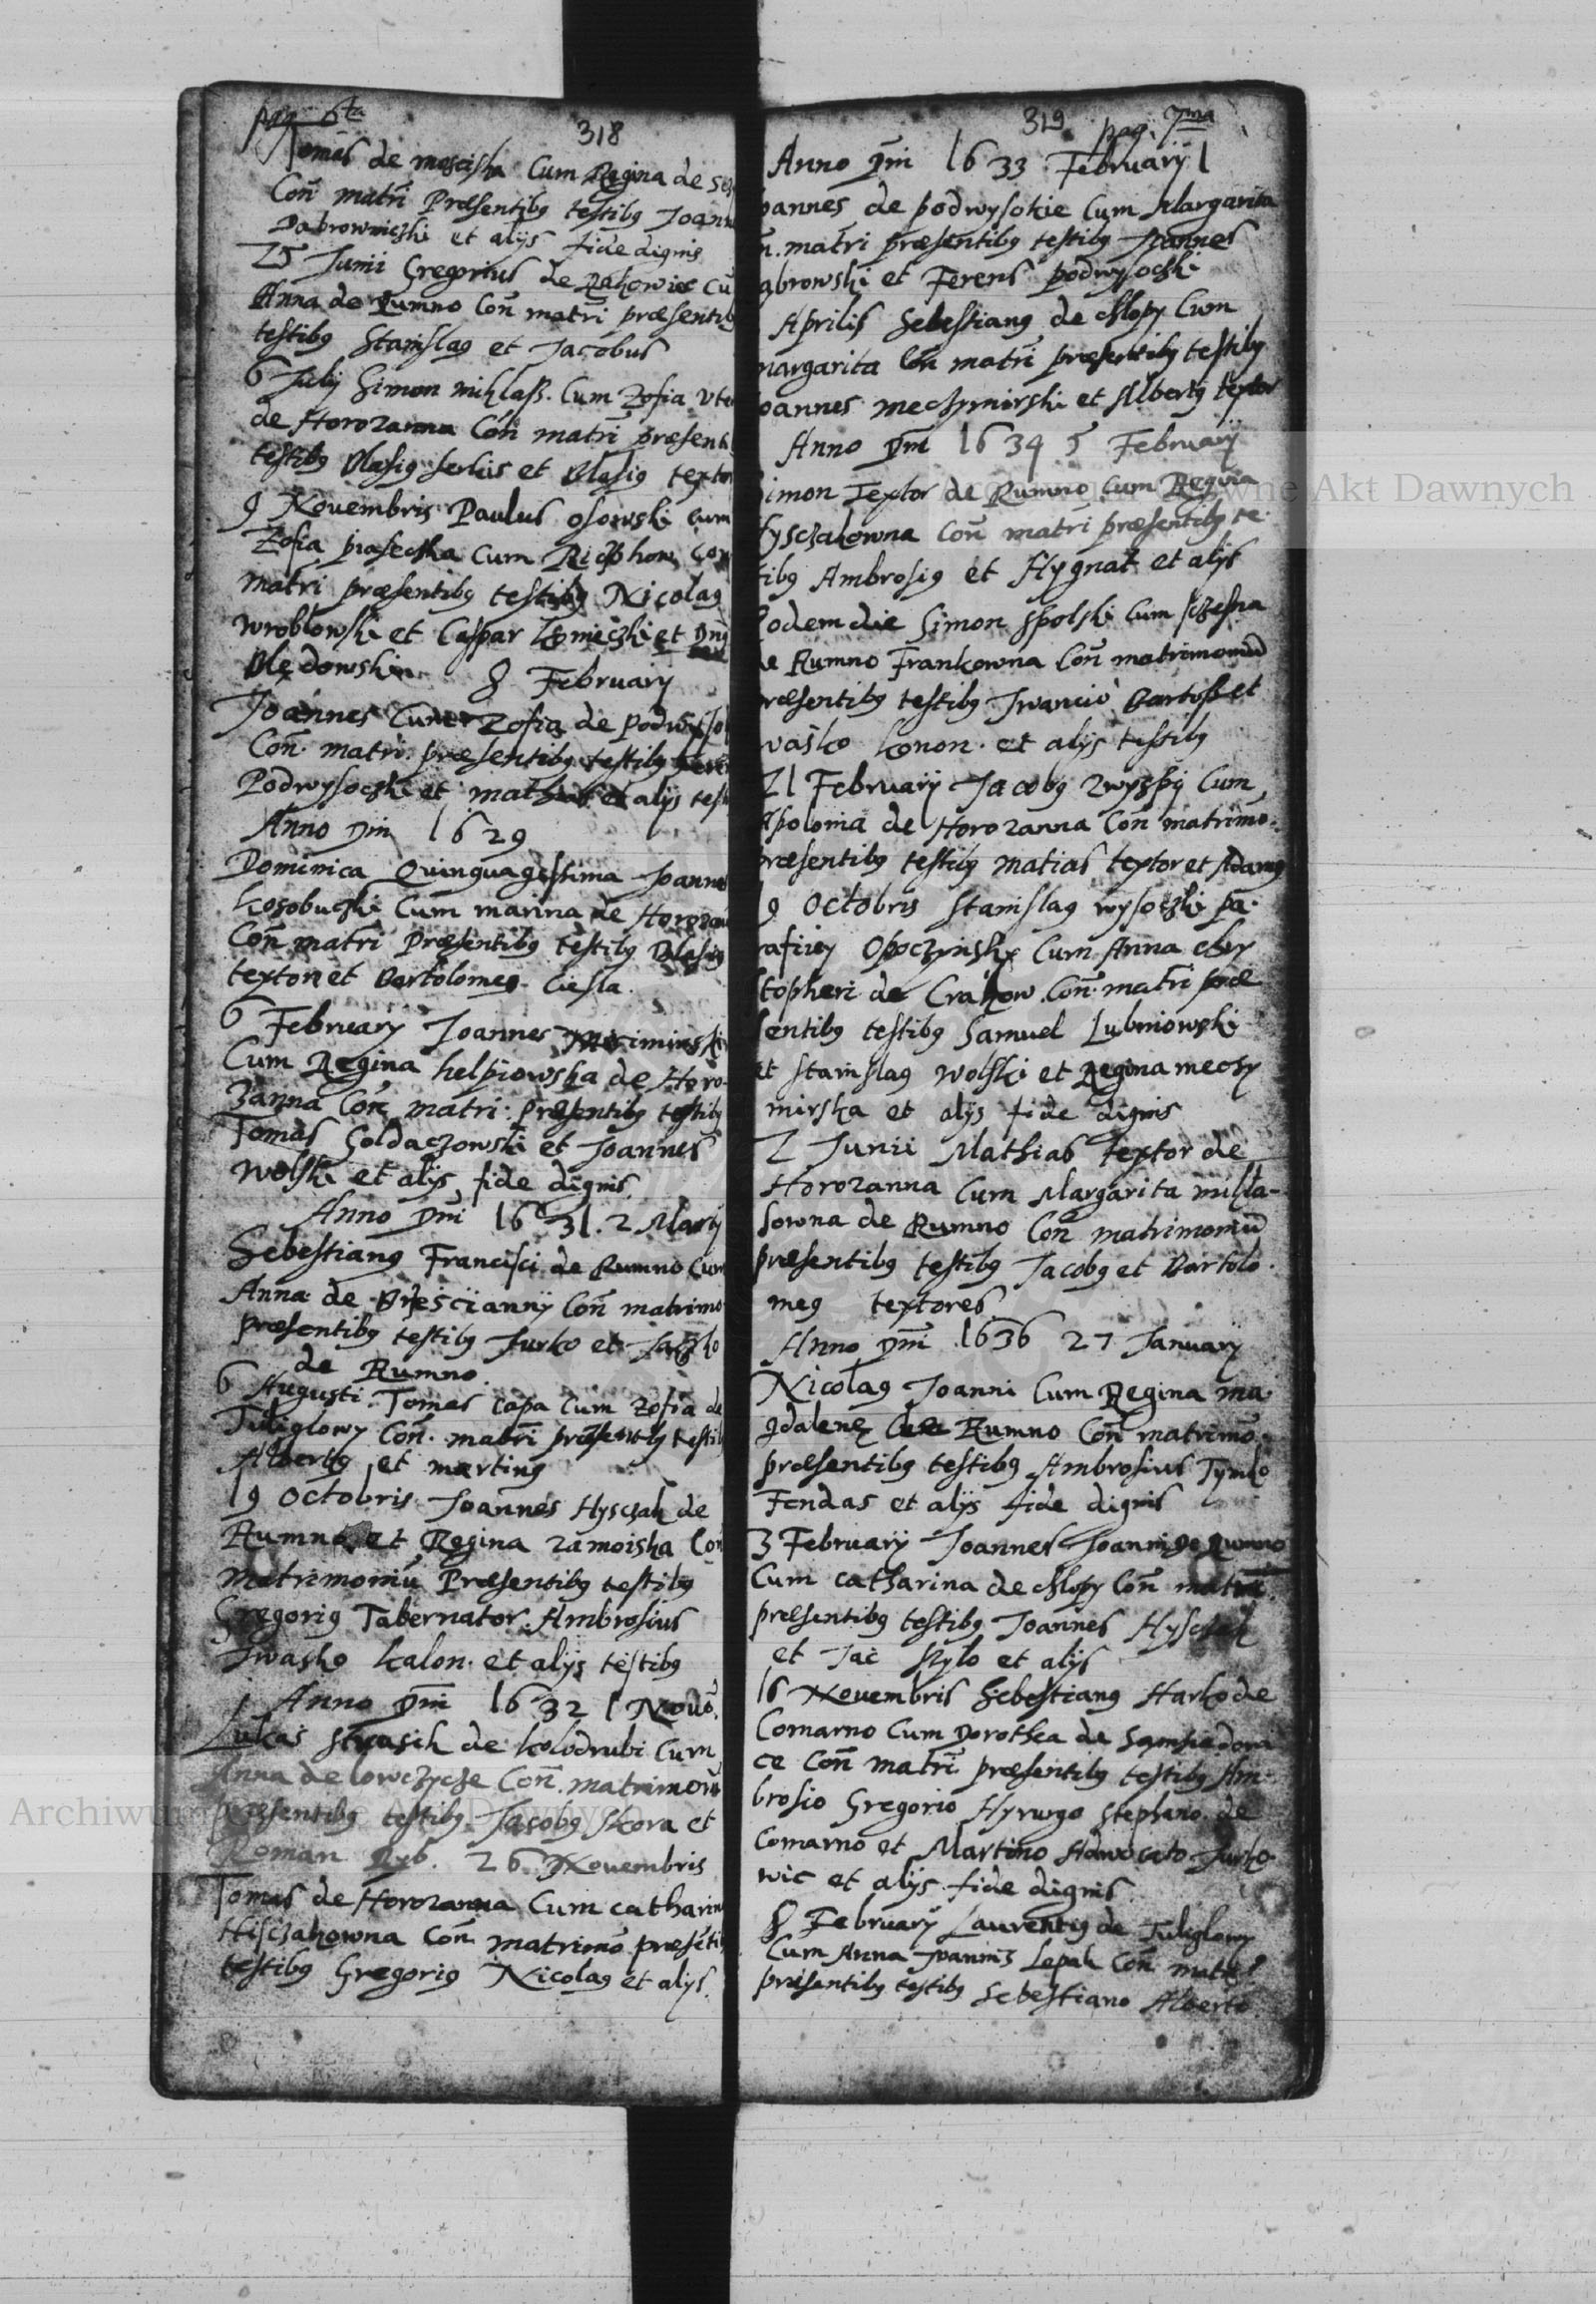 pag 6ta
318
Tomas de mosciska Cum Regina de
Con matri Præsentibg testibg Joan
Dabrowniczki et alijs fide dignis
25 Junii Gregorius de Rakowiec Cu
Anna de Rumno Con matri præsentib
testibg Stanislag et Jacobus
6 Julij Simon mihlass. Cum Zofia
de Horozanna Con matri præsenti
testibg Blasig et Blasig textor
9 Novembris Paulus osowski cum
Zofia piasecska Cum Con
matri præsentibg testibg Nicolag
Wroblowski et Caspar et Dng
Blędowski 8 February
Joannes Cum Zofia de
Con. matri. præsentibg testibg
Podwysocski et mathias et alijs test
Anno Dni 1629
Dominica Quinquagessima Joannes
kosobuczki Cum marina de Horozan
Con matri Præsentibg testibg Blasig
textor et Bartolomeg Ciesla.
6 February Joannes
Cum Regina helpiowska de Horo-
zanna Con matri: Præsentibg testibg
Tomas Goldaczowski et Joannes
Wolski et alijs fide dignis.
Anno Dni 1631. 2 Marty
Sebestiang Francisci de Rumno Cum
Anna de Brzescianny Con matrimo
præsentibg testibg Jurko et
de Rumno.
6 Augusti Tomas capa Cum Zofia de
Tuliglowy Con. matri præsentibg testib
Albertg et marting
19 Octobris Joannes Hysczak de
Rumno et Regina zamoiska Con
Matrimoniu Præsentibg testibg
Gregorig Tabernator Ambrosius
Iwasko kalon. et alijs testibg
Anno Dni 1632 1 Novo.
Lukas de kolodrubi Cum
Anna de lowczycze Con. matrimoniu
præsentibg testibg Jacobg skora et
Roman Ryb. 26 Novembris
Tomas de Horozanna Cum catharin
Hisczakowna Con matrimo præsenti
testibg Gregorig Nicolag et alijs.
319 pag: 7ma
Anno Dni 1633 February 1
oannes de podwysokie Cum Margarita
n. matri præsentibg testibg Joannes
abrowski et Ferens podwysocski
Aprilis Sebestiang de chlopy Cum
margarita Con matri præsentibg testibg
oannes mechzmirski et Albertg textor
Anno Dni 1634 5 February
imon Textor de Rumno Cum Regina
Hysczakowna Con matri præsentibg te.
tibg Ambrosig et Hygnat et alijs
Eodem die Simon spolski Cum sczesna
de Rumno Frankowna Con matrimoniu
præsentibg testibg Iwancio Bartoss et
wasko konon. et alijs testibg
21 February Jacobg zwyspy Cum
Apolonia de Horozanna Con matrimo.
ræsentibg testibg matias textor et Adamg
9 Octobris stanislag wysoczki pa.
rafiiey Opoczynsky Cum Anna chry
stopheri de Crakow Con. matri præ
sentibg testibg Samuel Lubniowski
et stanislag wolski et Regina mechz
mirska et alijs fide dignis
2 Junii Mathias textor de
Horozanna Cum Margarita mihla-
sowna de Rumno Con matrimoniu
præsentibg testibg Jacobg et Bartolo.
meg textores
Anno Dni 1636 27 January
Nicolag Joanni Cum Regina ma
gdaleny de Rumno Con matrimo.
præsentibg testibg Ambrosius Tymko
Fendas et alijs fide dignis
3 February Joannes Joanni de Rumno
Cum catharina de chlopy Con matri
præsentibg testibg Joannes Hysczak
et Jac Szylo et alijs
16 Novembris Sebestiang Harko de
Comarno Cum Dorothea de
ce Con matri præsentibg testibg Am-
brosio Gregorio Hyrurgo stephano de
Comarno et Martino Adwocato Jurko.
wic et alijs fide dignis
8 February Laurentig de Tuliglowy
Cum Anna Joannis Lepak Con matri
præsentibg testibg Sebestiano Alberto
Archiwum Główne Akt Dawnych
Archiwum Główne Akt Dawnych